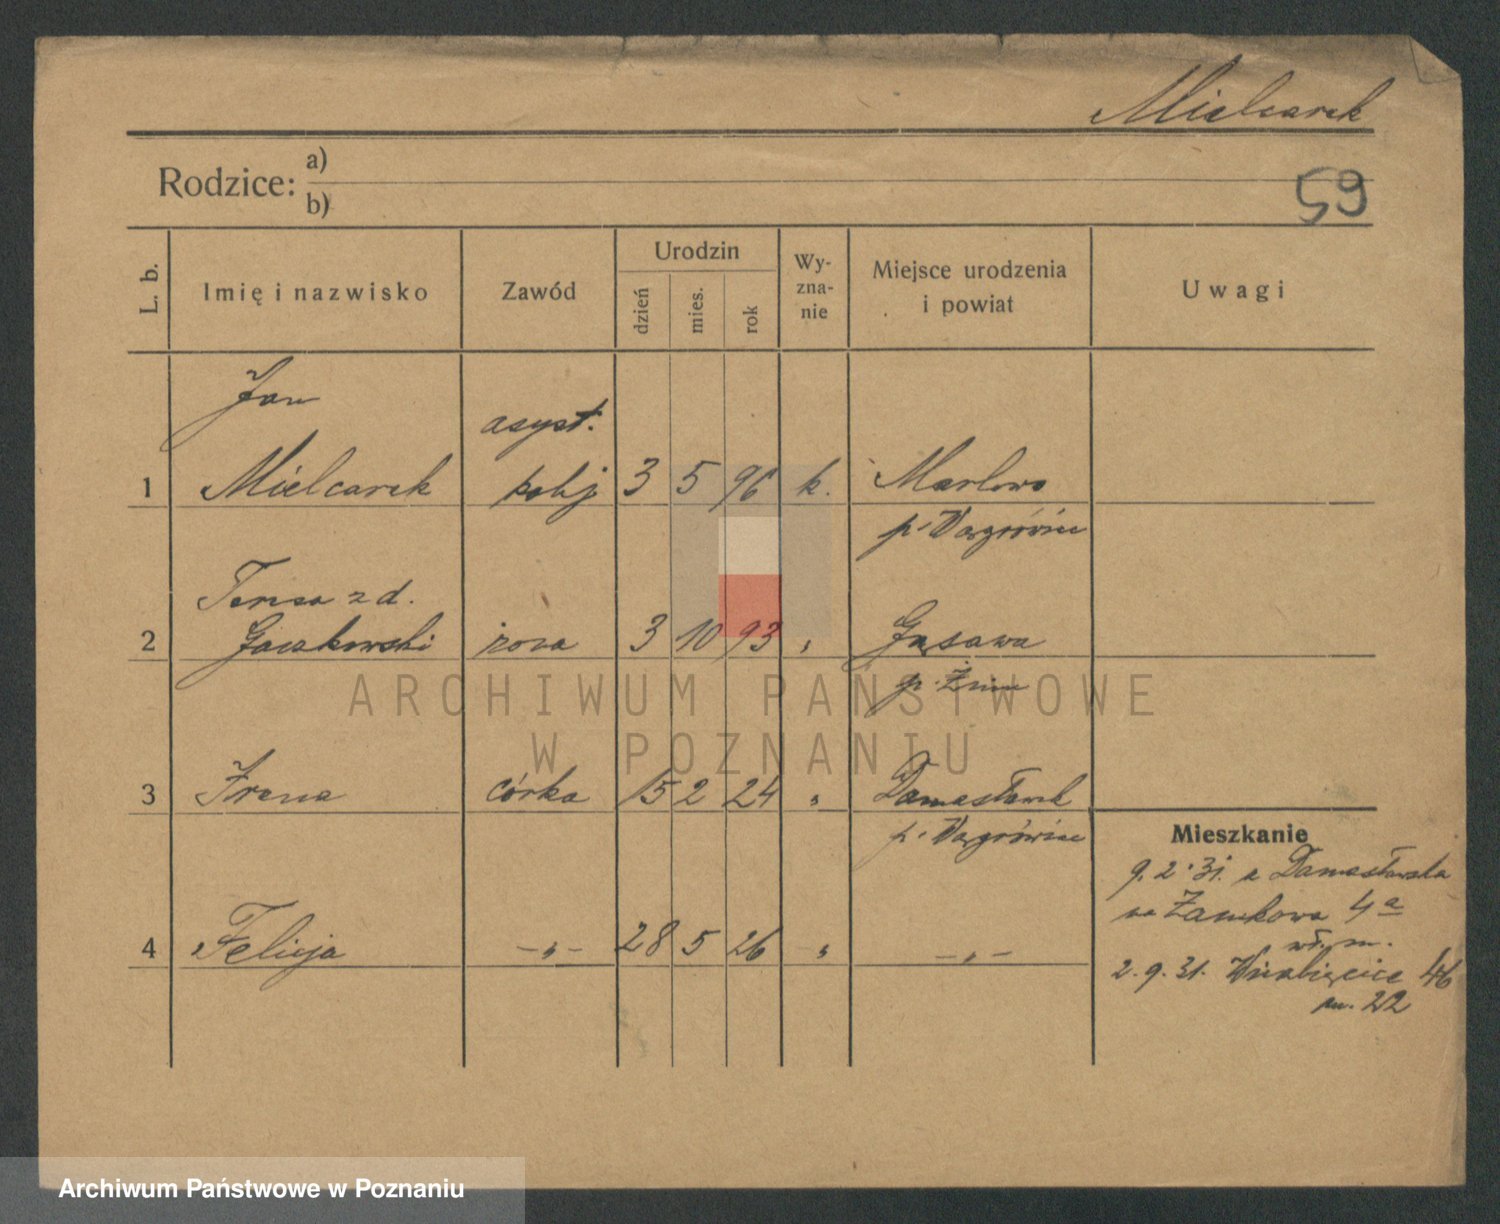 Mielcarek
Rodzice: a)
b)
59
L. b. Imię i nazwisko Zawód Urodzin dzień mies. rok Wy-zna-nie Miejsce urodzenia i powiat Uwagi
Jan
asyst.
1 Mielcarek 3 5 96 k.
p. Wągrówiec
Teresa z d.
2 żona 3 10 93 „ Gąsawa
p. Żnin
ARCHIWUM PAŃSTWOWE
W POZNANIU
3 Irena córka 15 2 24 „ Damasławek
p. Wągrówiec
Mieszkanie
9. 2. 31. z Damasławka
na Zamkowa 4a
4 Felicja -„- 28 5 26 „ -„-
wł. m.
2. 9. 31. 46
m. 22
Archiwum Państwowe w Poznaniu